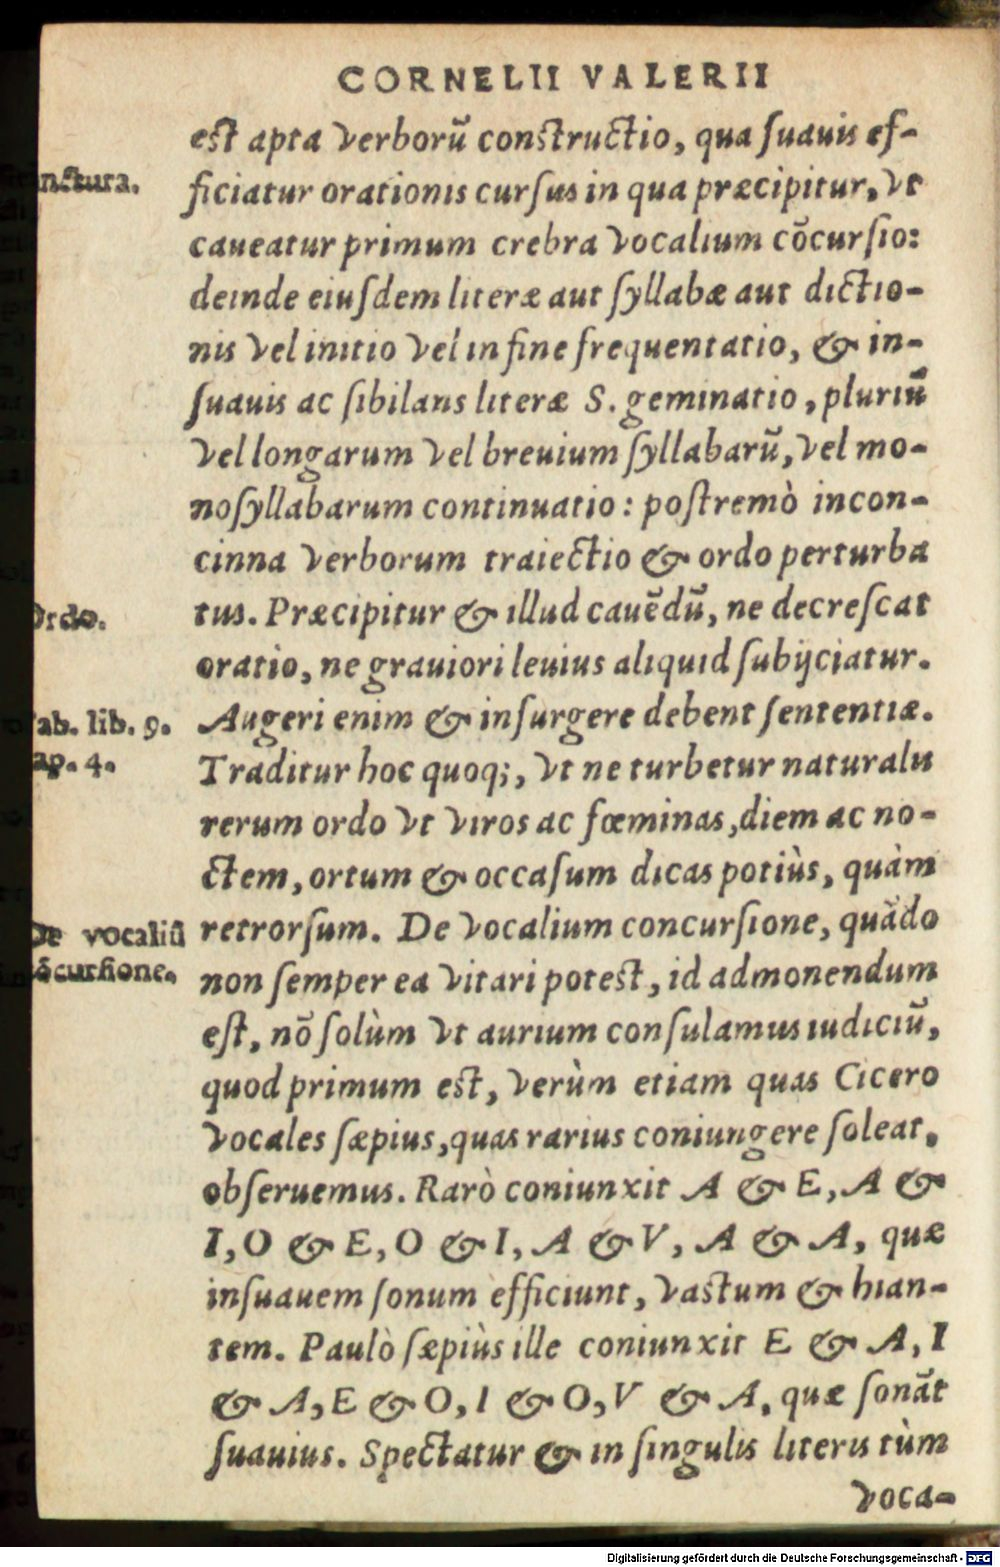 CORNELII VALERII
est apta verborũ constructio, qua ſuauis ef-
ficiatur orationis curſus in qua præcipitur, vt
nctura.
caueatur primum crebra vocalium cõcurſio:
deinde eiuſdem literæ aut ſyllabæ aut dictio-
nis vel initio vel in fine frequentatio, & in-
ſuauis ac ſibilans literæ S. geminatio, pluriũ
vel longarum vel breuium ſyllabarũ, vel mo-
noſyllabarum continuatio: poſtremò incon-
cinna verborum traiectio & ordo perturba
tus. Præcipitur & illud cauẽdũ, ne decreſcat
Ordo.
oratio, ne grauiori leuius aliquid ſubijciatur.
Augeri enim & inſurgere debent ſententiæ.
ab. lib. 9.
Traditur hoc quoq;, vt ne turbetur naturalis
ap. 4.
rerum ordo vt viros ac fœminas, diem ac no-
ctem, ortum & occaſum dicas potiùs, quàm
retrorſum. De vocalium concurſione, quãdo
De vocaliũ
non ſemper ea vitari poteſt, id admonendum
cõcurſione.
eſt, nõ ſolùm vt aurium conſulamus iudiciũ,
quod primum est, verùm etiam quas Cicero
vocales ſæpius, quas rarius coniungere ſoleat,
obſeruemus. Rarò coniunxit A & E, A &
I, O & E, O & I, A & V, A & A, quæ
inſuauem ſonum efficiunt, vaſtum & hian-
tem. Paulò ſæpiùs ille coniunxit E & A, I
& A, E & O, I & O, V & A, quæ ſonãt
ſuauius. Spectatur & in ſingulis literis tùm
voca-
Digitalisierung gefördert durch die Deutsche Forschungsgemeinschaft - DFG